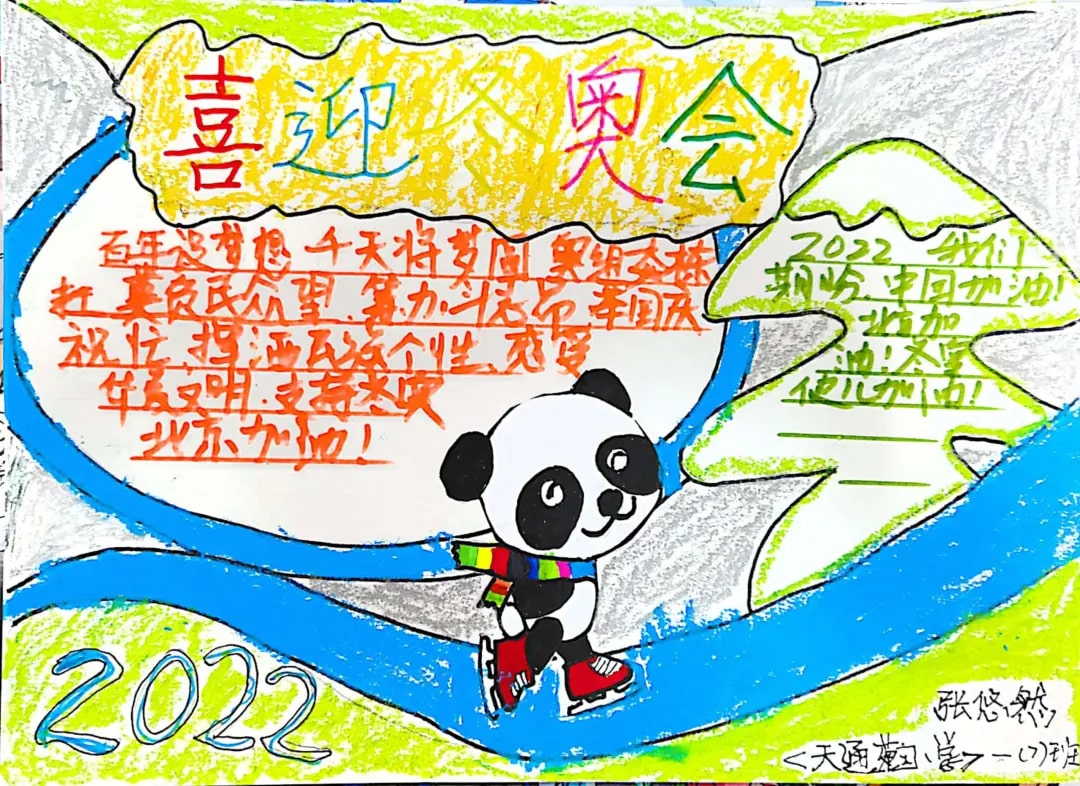 喜迎冬奥会
百年没梦想 千天将梦圆 奥组委操
冀危民众望 奋力斗志昂 举国庆
祝忙 捏 西民族个性 感受
华夏文明 支持冬奥
北京加油!
2022 我们
期盼 中国加油!
北京加
油:冬奥
健儿加油!
2022
张悠然
<天通苑小学>一(7)班